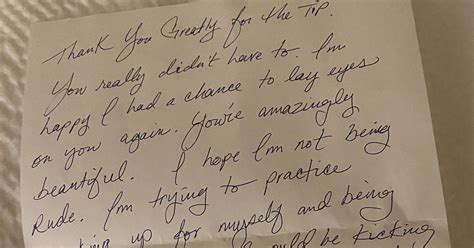 Thank You Greatly for the Tip.
You really didn't have to. I'm
happy I had a chance to lay eyes
on you again. You're amazingly
beautiful. I hope I'm not being
Rude. I'm trying to practice
up for myself and being
be kicking